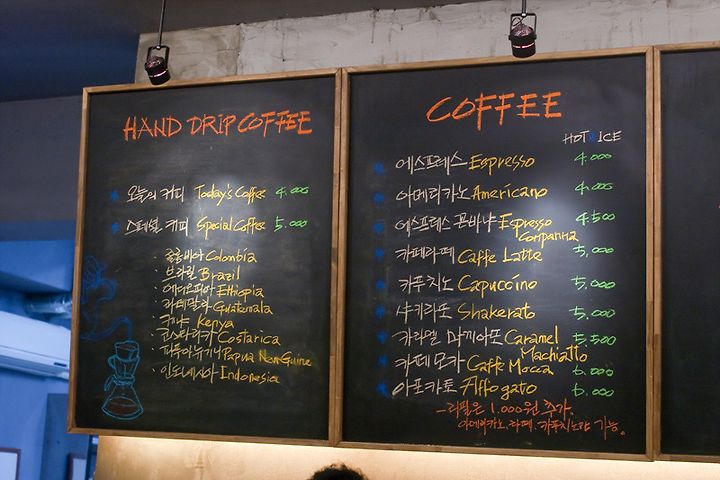 HAND DRIP COFFEE
오늘의 커피 Today's Coffee 4.000
스페셜 커피 Special Coffee 5.000
· 콜롬비아 Colombia
· 브라질 Brazil
· 에디오피아 Ethiopia
· 과테말라 Guatemala
· 케냐 Kenya
· 코스타리카 Costarica
· 파푸아뉴기니 Papua New Guine
· 인도네시아 Indonesia
COFFEE
HOT ICE
에스프레스 Espresso 4.000
아메리카노 Americano 4.000
에스프레스 콘바냐 Espresso Companna 4.500
카페라떼 Caffe Latte 5.000
카푸치노 Capuccino 5.000
샤키라또 Shakerato 5.000
카라멜 마끼아또 Caramel Machiatto 5.500
카페모카 Caffe Mocca 6.000
아포카토 Affogato 6.000
- 리필은 1.000원 추가.
아메리카노, 라떼, 카푸치노만 가능.